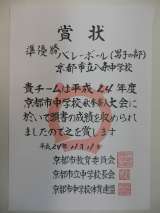 賞状
準優勝
バレーボール(男子の部)
京都市立八条中学校
貴チームは平成24年度
京都市中学校秋季新人大会に
於いて頭書の成績を収められ
ましたので之を賞します
平成24年11月
京都市教育委員会
京都市立中学校長会
京都市中学校体育連盟